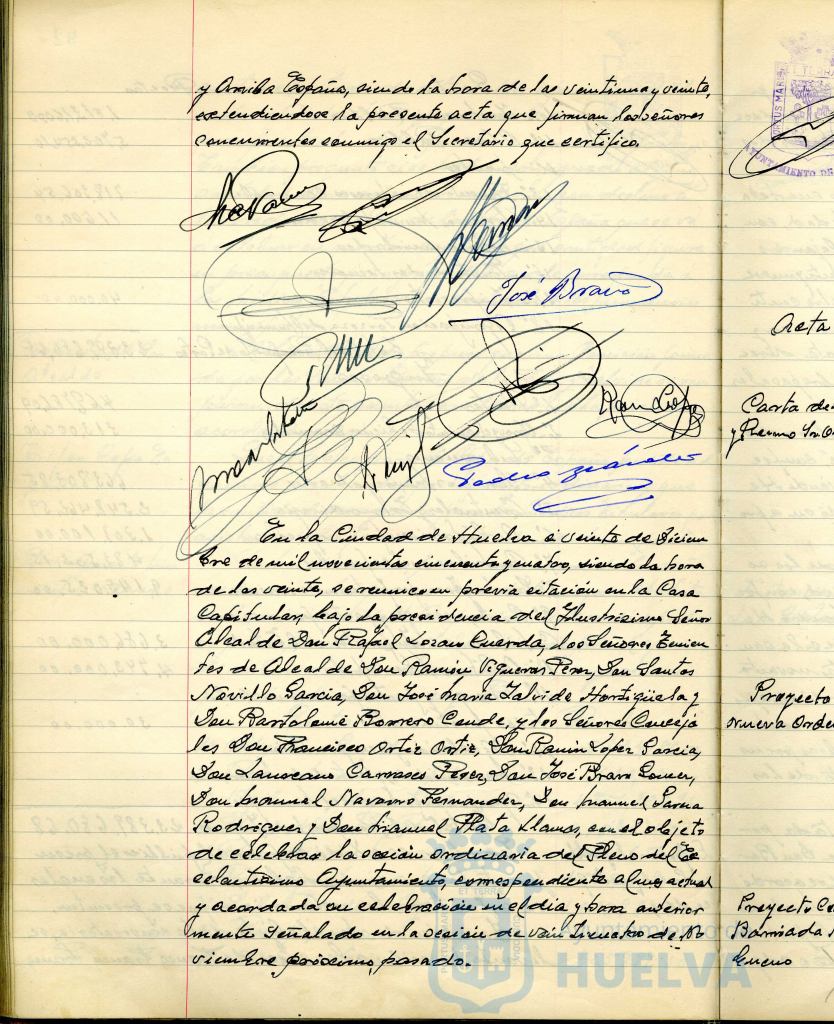 y Arriba España, siendo la hora de las veintiuna y veinte,
extendiendose la presente acta que firman los señores
concurrentes conmigo el Secretario que certifico.
José Bravo
En la Ciudad de Huelva a veinte de Diciem
bre de mil novecientos cincuenta y cuatro, siendo la hora
de las veinte, se reunieron previa citación en la Casa
Capitular, bajo la presidencia del Ilustrisimo Señor
Alcalde Don Rafael Lozano Cuerda, los Señores Tenien
tes de Alcalde Don Ramón Vigueras Pérez, Don Santos
Novillo García, Don José María Zalvide Hortigüela y
Don Bartolomé Borrero Conde, y los Señores Conceja
les Don Francisco Ortiz Ortiz, Don Ramón López García,
Don Laureano Carrasco Pérez, Don José Bravo Gomez,
Don Manuel Navarro Fernandez, Don Manuel
Rodriguez y Don Manuel Plata Llamas, con el objeto
de celebrar la sesión ordinaria del Pleno del Ex
celentisimo Ayuntamiento, correspondiente al mes actual
y acordada su celebración en el dia y hora anterior
mente señalado en la sesion de veinticuatro de No
viembre próximo pasado.
HUELVA
AYUNTAMIENTO DE
Acta
Carta de
Proyecto
nueva Orde
Proyecto
Barriada